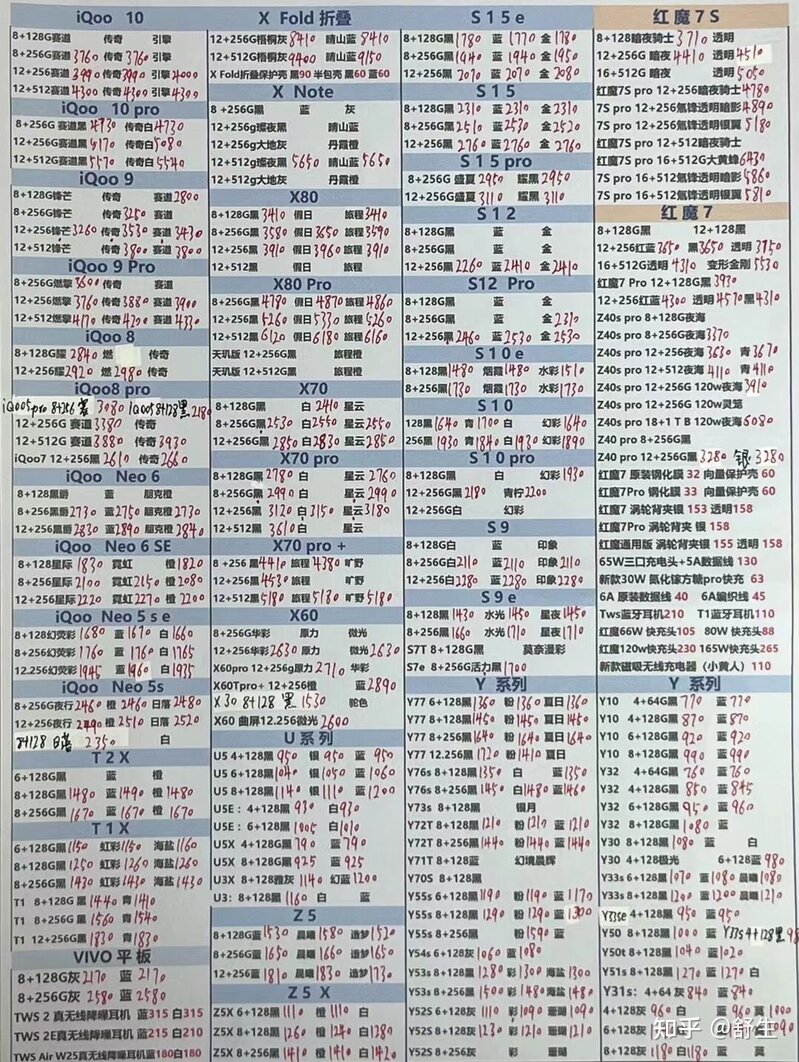 iQoo 10
8+128G赛道 传奇 引擎
8+256G赛道 3760 传奇 3760 引擎
12+256G赛道 3990 传奇 3990 引擎 4000
12+512G赛道 4300 传奇 4300 引擎 4300
iQoo 10 pro
8+256G 赛道黑 4730 传奇白 4730
12+256G 赛道黑 5170 传奇白 5080
12+512G 赛道黑 5570 传奇白 5540
iQoo 9
8+128G锋芒 传奇 赛道 2800
8+256G锋芒 传奇 3250 赛道
12+256锋芒 3260 传奇 3530 赛道 3430
12+512锋芒 传奇 3800 赛道 3800
iQoo 9 Pro
8+256G燃擎 3600 传奇 赛道
12+256燃擎 3760 传奇 3880 赛道 3900
12+512燃擎 4170 传奇 4200 赛道 4330
iQoo 8
8+128G耀 2840 燃 传奇
12+256G 2920 燃 2980 传奇
iQoo8 pro
3080 iQoo5 8+128黑 2180
12+256G 赛道 3380 传奇
12+512G 赛道 3880 传奇 3930
iQoo7 12+256黑 2610 传奇 2660
iQoo Neo 6
8+128黑爵 蓝 朋克橙
8+256黑爵 2730 蓝 2750 朋克橙 2730
12+256黑爵 2830 蓝 2890 朋克橙 2840
iQoo Neo 6 SE
8+128星际 1830 霓虹 橙 1820
8+256星际 2100 霓虹 2150 橙 2080
12+256星际 2220 霓虹 2270 橙 2200
iQoo Neo 5 s e
8+128幻荧彩 1680 蓝 1670 白 1660
8+256幻荧彩 1760 蓝 1760 白 1765
12.256幻荧彩 1945 蓝 1960 白 1935
iQoo Neo 5s
8+256G夜行 2460 橙 2460 日落 2480
12+256夜行 2490 橙 2510 日落 2520
8+128 日落 2350 白
T 2 X
6+128G黑 蓝 橙
8+128G黑 1480 蓝 1490 橙 1480
8+256G黑 1670 蓝 1670 橙 1670
T 1 X
6+128G黑 1150 虹彩 1150 海盐 1160
8+128G黑 1250 虹彩 1260 海盐 1260
8+256G黑 1430 虹彩 1430 海盐 1430
T1 8+128G 黑 1440 青 1410
T1 8+256G 黑 1560 青 1540
T1 12+256G 黑 1830 青 1830
VIVO 平板
8+128G灰 2170 蓝 2170
8+256G灰 2580 蓝 2580
TWS 2 真无线降噪耳机 蓝315 白315
TWS 2E真无线降噪耳机 蓝215 白210
TWS Air W25真无线降噪耳机蓝180白180
X Fold 折叠
12+256G梧桐灰 8410 晴山蓝 8410
12+512G梧桐灰 9400 晴山蓝 9150
X Fold折叠保护壳 黑90 半包壳 黑60 蓝60
X Note
8 +256G黑 蓝 灰
12+256g璨夜黑 晴山蓝
12+256g大地灰 丹霞橙
12+512g璨夜黑 5650 晴山蓝 5650
12+512g大地灰 丹霞橙
X80
8+128G黑 3410 假日 旅程 3410
8+256G黑 3580 假日 3650 旅程 3590
12+256黑 3910 假日 3960 旅程 3910
12+512黑 假日 旅程
X80 Pro
8+256G黑 4780 假日 4870 旅程 4860
12+256黑 5260 假日 5330 旅程 5260
12+512黑 6120 假日 6180 旅程 6160
天玑版 12+256G黑 旅程橙
天玑版 12+512G黑 旅程橙
X70
8+128G黑 白 2410 星云
8+256G黑 2530 白 2550 星云 2550
12+256黑 2850 白 2830 星云 2850
X70 pro
8+128G黑 2780 白 星云 2760
8+256G黑 2990 白 星云 2990
12+256黑 3120 白 3150 星云 3180
12+512黑 3610 白 星云
X70 pro +
8+256 黑 4410 橙 4380 旷野
12+256黑 4530 橙 旷野
12+512黑 5180 橙 5180 旷野 5180
X60
8+256G华彩 原力 微光
12+256华彩 2630 原力 微光 2630
X60pro 12+256g原力 2710 华彩
X60Tpro+ 12+256橙 蓝 2890
X30 8+128 黑 1530 驼色
X60 曲屏12.256微光 2600
U 系 列
U5 4+128黑 950 银 950 蓝 950
U5 6+128黑 1040 银 1050 蓝 1060
U5 8+128黑 1140 银 1110 蓝 1200
U5E：4+128黑 930 白 930
U5E：6+128黑 1005 白 1010
U5X 4+128G黑 790 蓝 790
U5X 8+128G黑 925 蓝 925
U3X 8+128雅灰 1140 幻蓝 1200
U3： 8+128G黑 1160 白 蓝
Z 5
8+128G蓝 1530 晨曦 1580 造梦 1520
8+256G蓝 1650 晨曦 1660 造梦 1650
12+256蓝 1810 晨曦 1830 造梦 1730
Z 5 X
Z5X 6+128黑 1110 橙 1110 白
Z5X 8+128黑 1260 橙 1240 白 1280
Z5X 8+256黑 1410 橙 1410 白 1420
S 1 5 e
8+128G黑 1780 蓝 1770 金 1780
8+256G黑 1940 蓝 1940 金 1950
12+256黑 2070 蓝 2070 金 2080
S 1 5
8+128G黑 2310 蓝 2310 金 2310
8+256G黑 2510 蓝 2530 金 2520
12+256黑 2760 蓝 2760 金 2760
S 1 5 pro
8+256G 盛夏 2950 耀黑 2950
12+256G盛夏 3110 耀黑 3110
S 1 2
8+128G黑 蓝 金
8+256G黑 蓝 金
12+256黑 2260 蓝 2410 金 2410
S12 Pro
8+128G黑 蓝 金
8+256G黑 蓝 金 2310
12+256黑 2460 蓝 2530 金 2530
S 1 0 e
8+128黑 1480 烟霞 1480 水彩 1510
8+256黑 1730 烟霞 1730 水彩 1730
S 1 0
128黑 1640 青 1700 白 幻彩 1640
256黑 1930 青 1840 白 1930 幻彩 1890
S 1 0 pro
8+128G黑 白 幻彩 1930
12+256G黑 2180 青柠 2200
12+256G白 幻彩
S 9
8+128G白 蓝 印象
8+256G白 2110 蓝 2110 印象 2110
12+256白 2280 蓝 2280 印象 2280
S 9 e
8+128黑 1430 水光 1450 星夜 1450
8+256黑 水光 1710 星夜 1710
S7T 8+128G黑 莫奈漫彩
S7e 8+256G活力黑 1700
Y 系列
Y77 6+128黑 1360 粉 1360 夏日 1360
Y77 8+128黑 1450 粉 1450 夏日 1450
Y77 8+256黑 1640 粉 1640 夏日 1640
Y77 12.256黑 1720 粉 1410 夏日
Y76s 8+128黑 1350 白 蓝 1350
Y76s 8+256黑 1450 白 1480 蓝 1460
Y73s 8+128G黑 银月
Y72T 8+128黑 1210 粉 1210 蓝 1210
Y72T 8+256黑 1440 粉 1440 蓝 1440
Y71T 8+128蓝 幻境晨辉
Y70S 8+128黑
Y55s 6+128黑 1190 粉 1190 蓝 1170
Y55s 8+128黑 1290 粉 1290 蓝 1300
Y55s 8+256黑 粉 1590 蓝
Y54s 6+128灰 1060 蓝 1080
Y53s 8+128黑 1280 彩 1300 海盐 1300
Y53s 8+256黑 1500 彩 1480 海盐 1480
Y52S 6+128黑 彩 1100 珊瑚 1090
Y52S 8+128黑 1230 彩 1210 珊瑚 1210
Y52S 8+256灰 彩 珊瑚
红 魔 7 S
8+128暗夜骑士 3710 透明
12+256G 暗夜 4410 透明 4510
16+512G 暗夜 透明 5050
红魔7S pro 12+256暗夜骑士 4780
7S pro 12+256氘锋透明暗影 4890
7S pro 12+256氘锋透明银翼 5180
红魔7S pro 12+512暗夜骑士
红魔7S pro 16+512G大黄蜂 6430
7S pro 16+512氘锋透明暗影 5860
7S pro 16+512氘锋透明银翼 5810
红 魔 7
8+128G黑 12+128黑
12+256红蓝 3650 黑 3650 透明 3950
16+512G透明 4310 变形金刚 5530
红魔7 Pro 12+128G黑 3930
12+256红蓝 4300 透明 4570 黑 4310
Z40s pro 8+128G夜海
Z40s pro 8+256G夜海 3370
Z40s pro 12+256夜海 3630 青 3670
Z40s pro 12+512夜海 4110 青 4110
Z40s pro 12+256G 120w夜海 3910
Z40s pro 12+256G 120w灵笼
Z40s pro 18+1 T B 120w夜海 6080
Z40 pro 8+256G黑
Z40 pro 12+256G黑 3280 银 3280
红魔7 原装钢化膜 32 向量保护壳 60
红魔7Pro 钢化膜 33 向量保护壳 60
红魔7 涡轮背夹 银 153 透明158
红魔7Pro 涡轮背夹 银 158
红魔通用版 涡轮背夹 银 155 透明 158
65W三口充电头+5A数据线 130
新款30W 氮化镓方糖pro快充 63
6A 原装数据线 40 6A编织线 45
Tws蓝牙耳机210 T1蓝牙耳机110
红魔66W 快充头105 80W 快充头88
红魔120w快充头230 165W快充头265
新款磁吸无线充电器（小黄人）110
Y 系列
Y10 4+64G黑 770 蓝 770
Y10 4+128G黑 870 蓝 870
Y10 6+128G黑 920 蓝 920
Y10 8+128G黑 990 蓝 990
Y32 4+64G黑 760 蓝 760
Y32 4+128G黑 850 蓝 845
Y32 6+128G黑 950 蓝 960
Y32 8+128G黑 1080 蓝
Y30 8+128G黑 1080 蓝 白
Y30 4+128极光 6+128蓝 980
Y33s 6+128黑 1070 蓝 1080 晨曦 1080
Y33s 8+128黑 1200 蓝 1200 晨曦 1210
Y33se 4+128黑 950 蓝 950
Y50 8+128黑 1000 蓝 Y33s 4+128黑
Y50t 8+128黑 1040 蓝 1020
Y51s 8+128黑 1270 蓝 1270 白
Y31s：4+64 灰 840 蓝 840
4+128灰 960 白 960 蓝 1000
6+128灰 白 蓝
8+128灰 1180 白 1180 蓝
知乎 @舒生